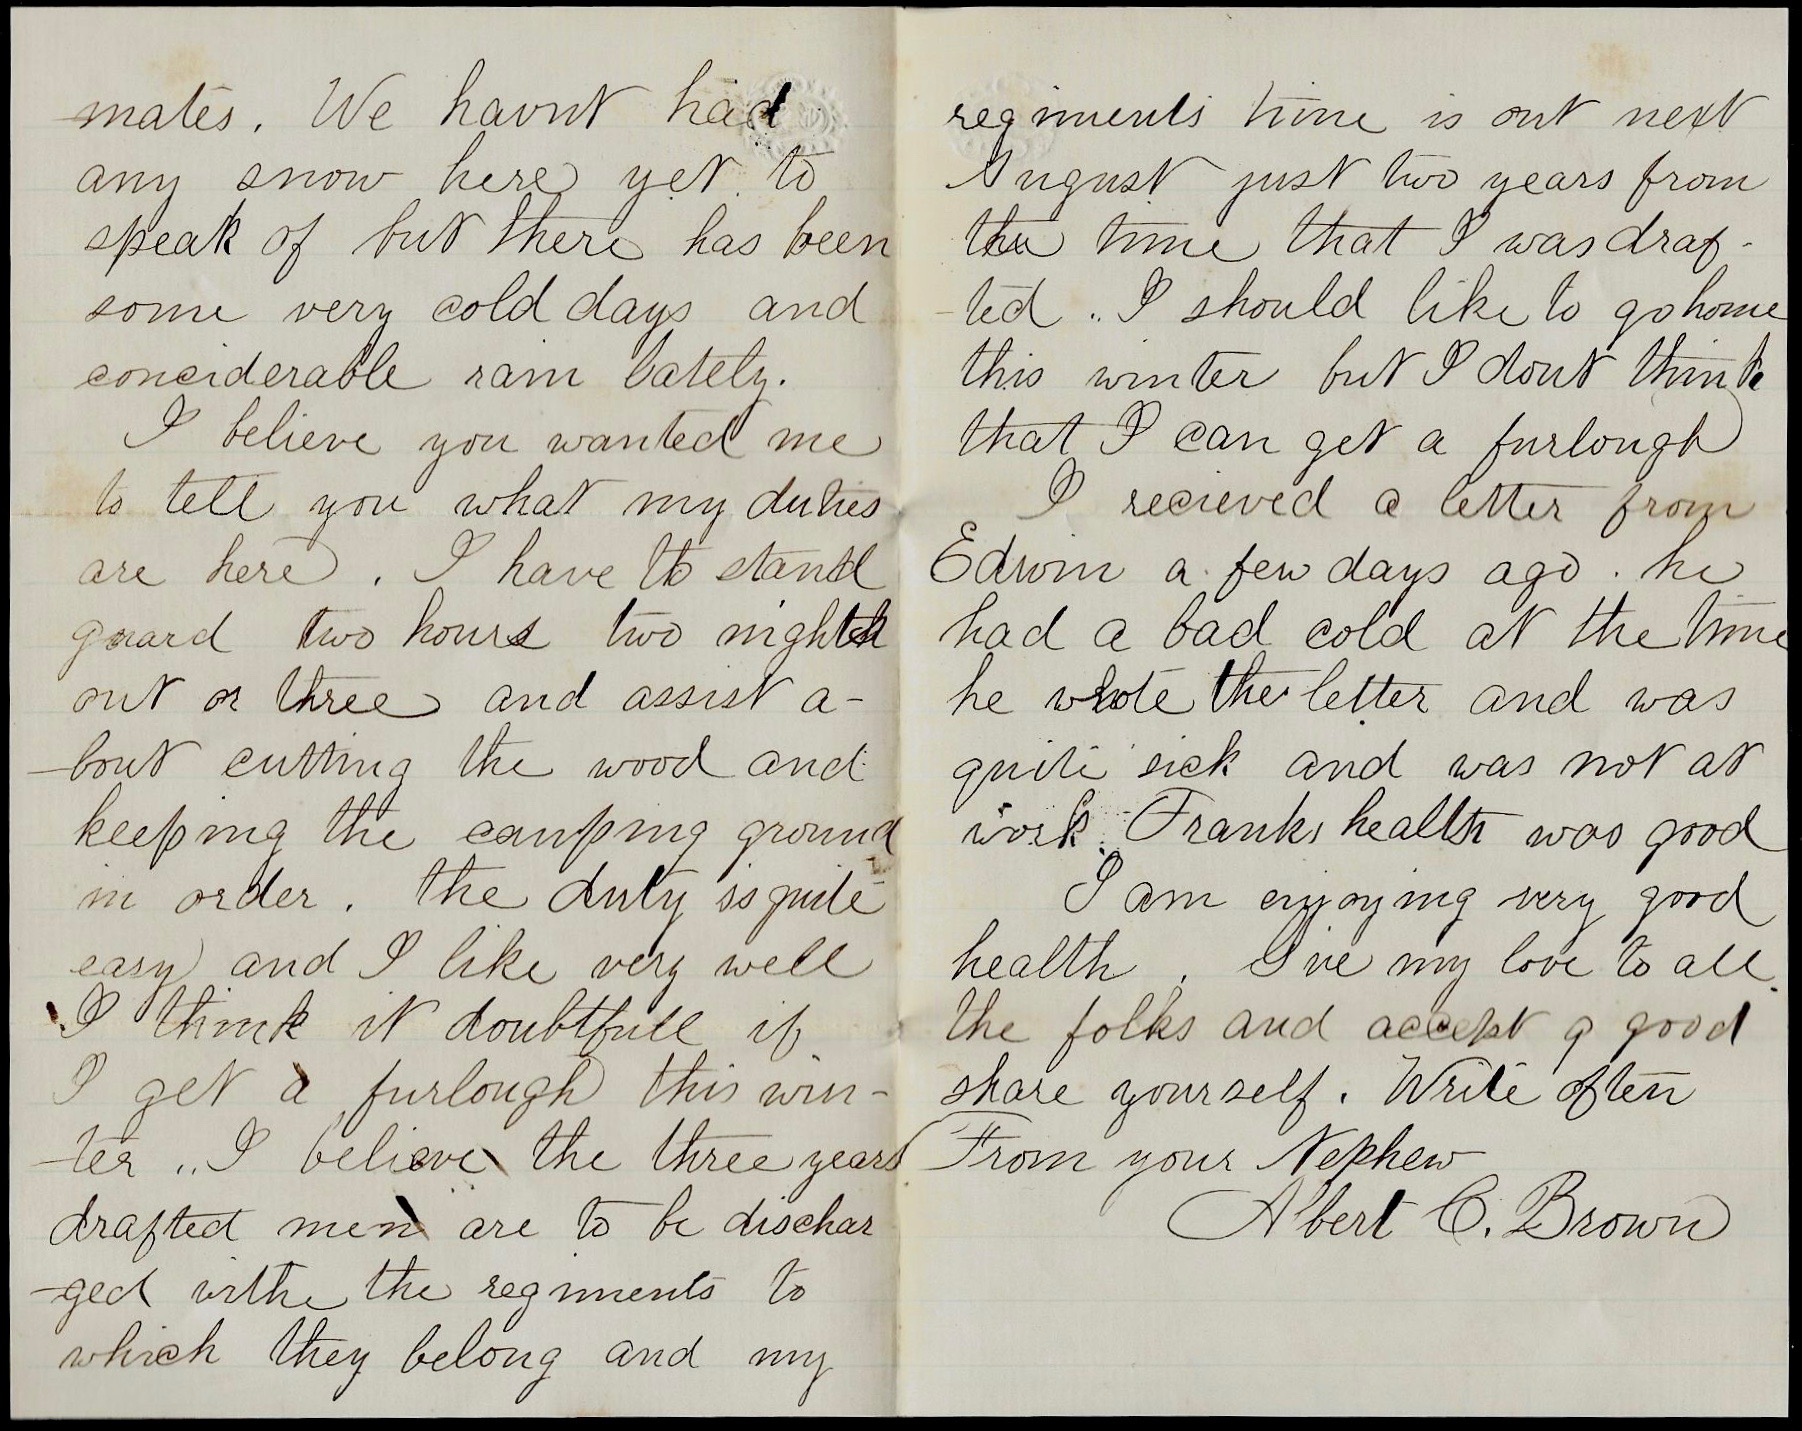 mates. We havnt had
any snow here yet to
speak of but there has been
some very cold days and
conciderable rain lately.
I believe you wanted me
to tell you what my duties
are here. I have to stand
guard two hours two nights
out or three and assist a-
-bout cutting the wood and
keeping the camping ground
in order. the duty is quite
easy and I like very well
I think it doubtfull if
I get a furlough this win-
-ter.. I believe the three years
drafted men are to be dischar
-ged withe the regiments to
which they belong and my
regiments time is out next
August just two years from
the time that I was draf-
-ted.. I should like to go home
this winter but I dont think
that I can get a furlough
I recieved a letter from
Edwin a few days ago. he
had a bad cold at the time
he wrote the letter and was
quite sick and was not at
work. Franks health was good
I am enjoying very good
health. Give my love to all.
the folks and accept a good
share yourself. Write often
From your Nephew
Albert C. Brown